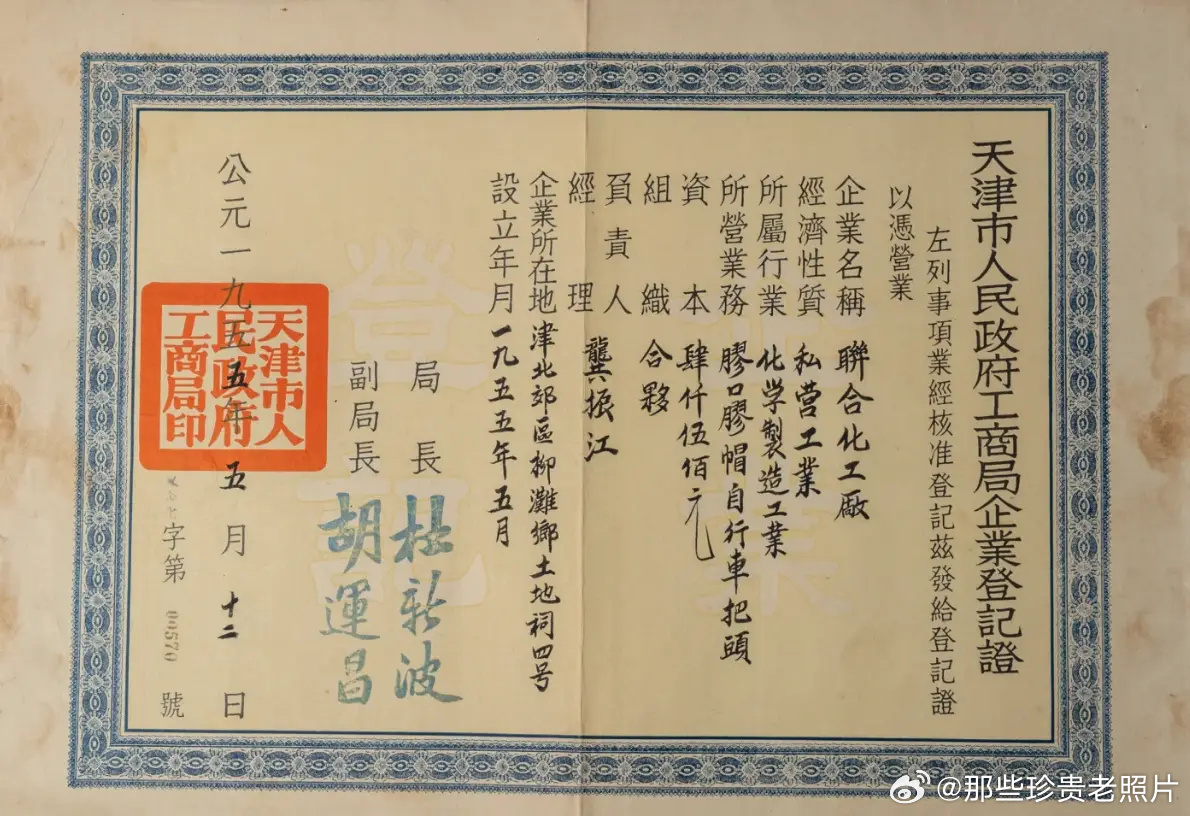 天津市人民政府工商局企業登記證
左列事項業經核准登記茲發給登記證
以憑營業
企業名稱 聯合化工廠
經濟性質 私營工業
所屬行業 化學製造工業
所營業務 膠口膠帽自行車把頭
資本 肆仟伍佰元
組織 合夥
負責人
經理 龔振江
企業所在地 津北郊區柳灘鄉土地祠四号
設立年月 一九五五年五月
局長 杜新波
副局長 胡運昌
公元一九五五年五月十二日
字第00570號
天津市人
民政府
工商局印
登記
企業
@那些珍贵老照片